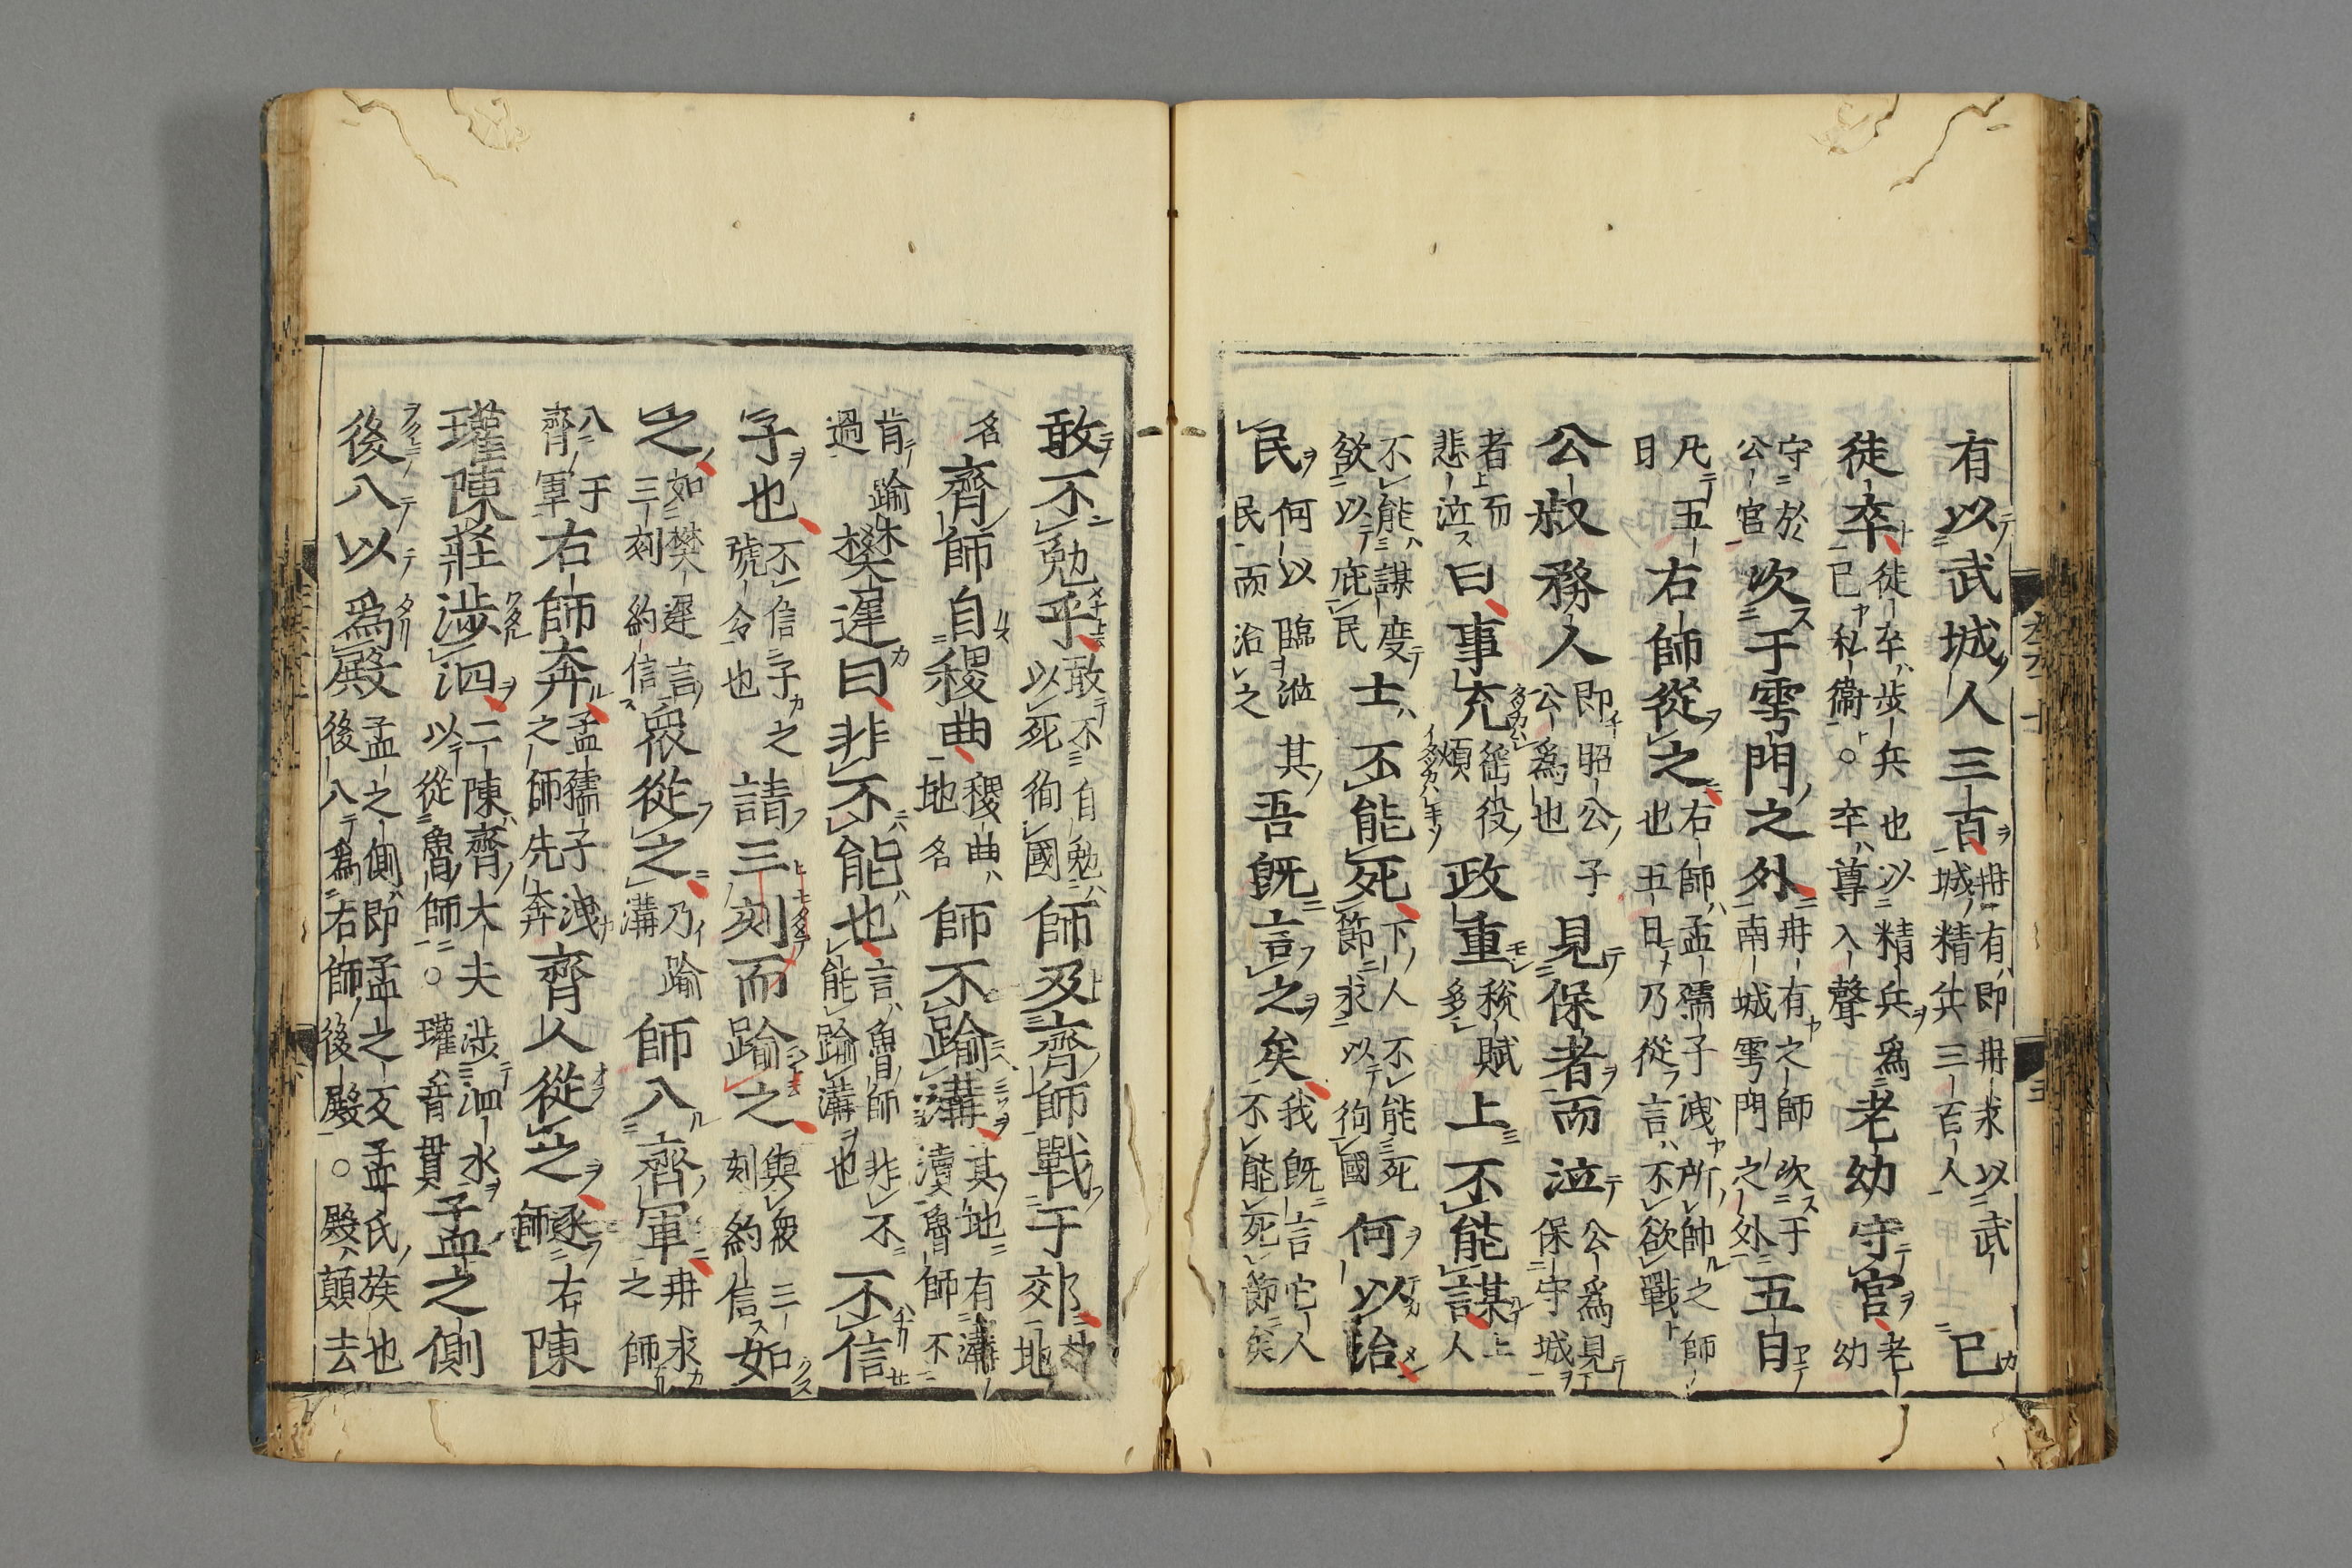 有以武城人三百冉有即冉求以武城精兵三百人已
徒卒徒卒步兵也以精兵爲已私衞○卒尊入聲老幼守官老幼
守於公官次于雩門之外冉有之師次于南城雩門之外五日
凡五日右師從之右師孟孺子洩所帥之師也五日乃從言不欲戰
公叔務人即昭公子公爲也見保者而泣公爲見保守城
者而悲泣曰事充徭役煩政重稅賦多上不能謀上人
不能謀度欲以庇民士不能死下人不能死節求以徇國何以治
民何以臨涖民而治之其吾既言之矣我既言它人不能死節矣
敢不勉乎敢不自勉以死徇國師及齊師戰于郊地
名齊師自稷曲稷曲地名師不踰溝其地有溝瀆魯師不
肯踰過樊遲曰非不能也言魯師非不能踰溝也不信
子也不信子之號令也請三刻而踰之與衆三刻約信如
之如樊遲言三刻約信衆從之乃踰溝師入齊軍冉求之師
入于齊軍右師奔孟孺子洩之師先奔齊人從之逐右師陳
瓘陳莊涉泗二陳齊大夫涉泗水以從魯師○瓘音貫孟之側
後入以爲殿孟之側即孟之反孟氏族也後入爲右師後殿○殿顛去